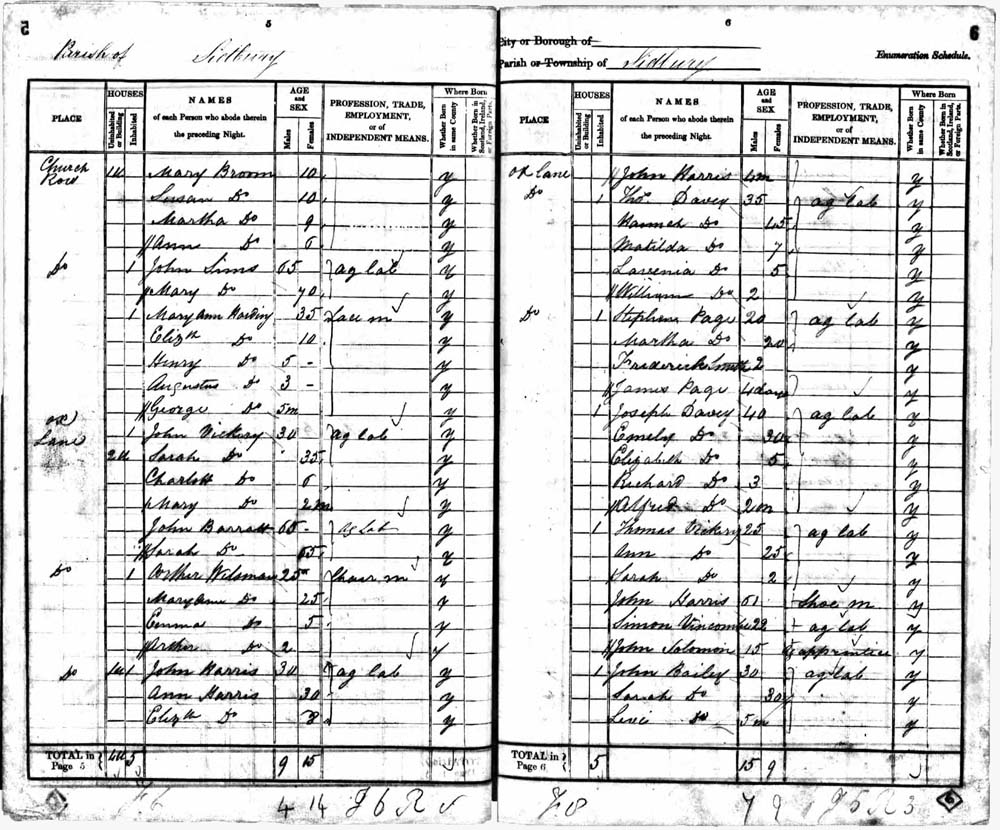 5
5
Parish of Sidbury
PLACE
HOUSES
Uninhabited or Building
Inhabited
NAMES
of each Person who abode therein the preceding Night.
AGE and SEX
Males
Females
PROFESSION, TRADE, EMPLOYMENT, or of INDEPENDENT MEANS.
Where Born
Whether Born in same County
Whether Born in Scotland, Ireland, or Foreign Parts.
Church Row 1u Mary Broom 10 y
Susan Do 10 y
Martha Do 9 y
Ann Do 6 y
Do 1 John Sims 65 ag lab y
Mary Do 70 y
1 Mary Ann Harding 35 Lace m y
Elizth Do 10 y
Henry Do 5 - y
Augustus Do 3 - y
George Do 5m y
ox Lane 1 John Vickery 30 ag lab y
2u Sarah Do 35 y
Charlott Do 6 y
Mary Do 2m y
John Barratt 65 - ag lab y
Sarah Do 65 y
Do 1 Arthur Wilsman 25 Chair m y
Mary Ann Do 25 y
Emma Do 5 y
Arthur Do 2 y
Do 1u 1 John Harris 30 ag lab y
Ann Harris 30 y
Elizth Do y
TOTAL in Page 5 4u 5 9 15
4 14
6
9
City or Borough of
Parish or Township of Sidbury
Enumeration Schedule.
PLACE
HOUSES
Uninhabited or Building
Inhabited
NAMES
of each Person who abode therein the preceding Night.
AGE and SEX
Males
Females
PROFESSION, TRADE, EMPLOYMENT, or of INDEPENDENT MEANS.
Where Born
Whether Born in same County
Whether Born in Scotland, Ireland, or Foreign Parts.
ox Lane John Harris 4m y
Do 1 Thos. Davey 35 ag lab y
Hannah Do 45 y
Matilda Do 7 y
Lavenia Do 5 y
William Do 2 y
Do 1 Stephen Page 20 ag lab y
Martha Do 20 y
Frederick Smith 2 y
James Page 4 days y
1 Joseph Davey 40 ag lab y
Emely Do 30 y
Elizabeth Do 5 y
Richard Do 3 y
Alfred Do 2m y
1 Thomas Vickery 25 ag lab y
Ann Do 25 y
Sarah Do 2 y
John Harris 61 Shoe m y
Simon Vincombe 22 ag lab y
John Solomon 15 apprentice y
1 John Bailey 30 ag lab y
Sarah Do 30 y
Levi Do 5m y
TOTAL in Page 6 5 15 9
7 9
6